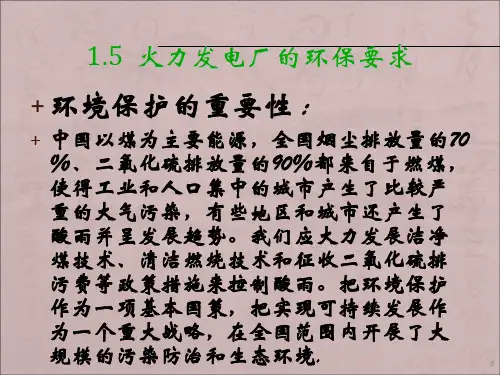 1.5 火力发电厂的环保要求
+环境保护的重要性：
+中国以煤为主要能源，全国烟尘排放量的70
%、二氧化硫排放量的90%都来自于燃煤，
使得工业和人口集中的城市产生了比较严
重的大气污染，有些地区和城市还产生了
酸雨并呈发展趋势。我们应大力发展洁净
煤技术、清洁燃烧技术和征收二氧化硫排
污费等政策措施来控制酸雨。把环境保护
作为一项基本国策，把实现可持续发展作
为一个重大战略，在全国范围内开展了大
规模的污染防治和生态环境.